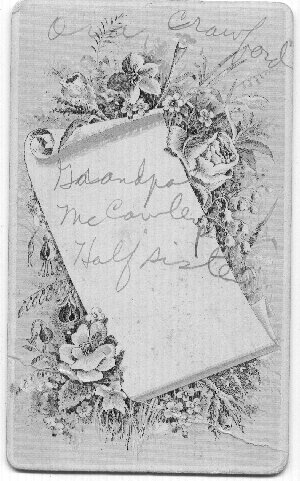 Ora Crawford
Grandpa
McCawley
Half sister